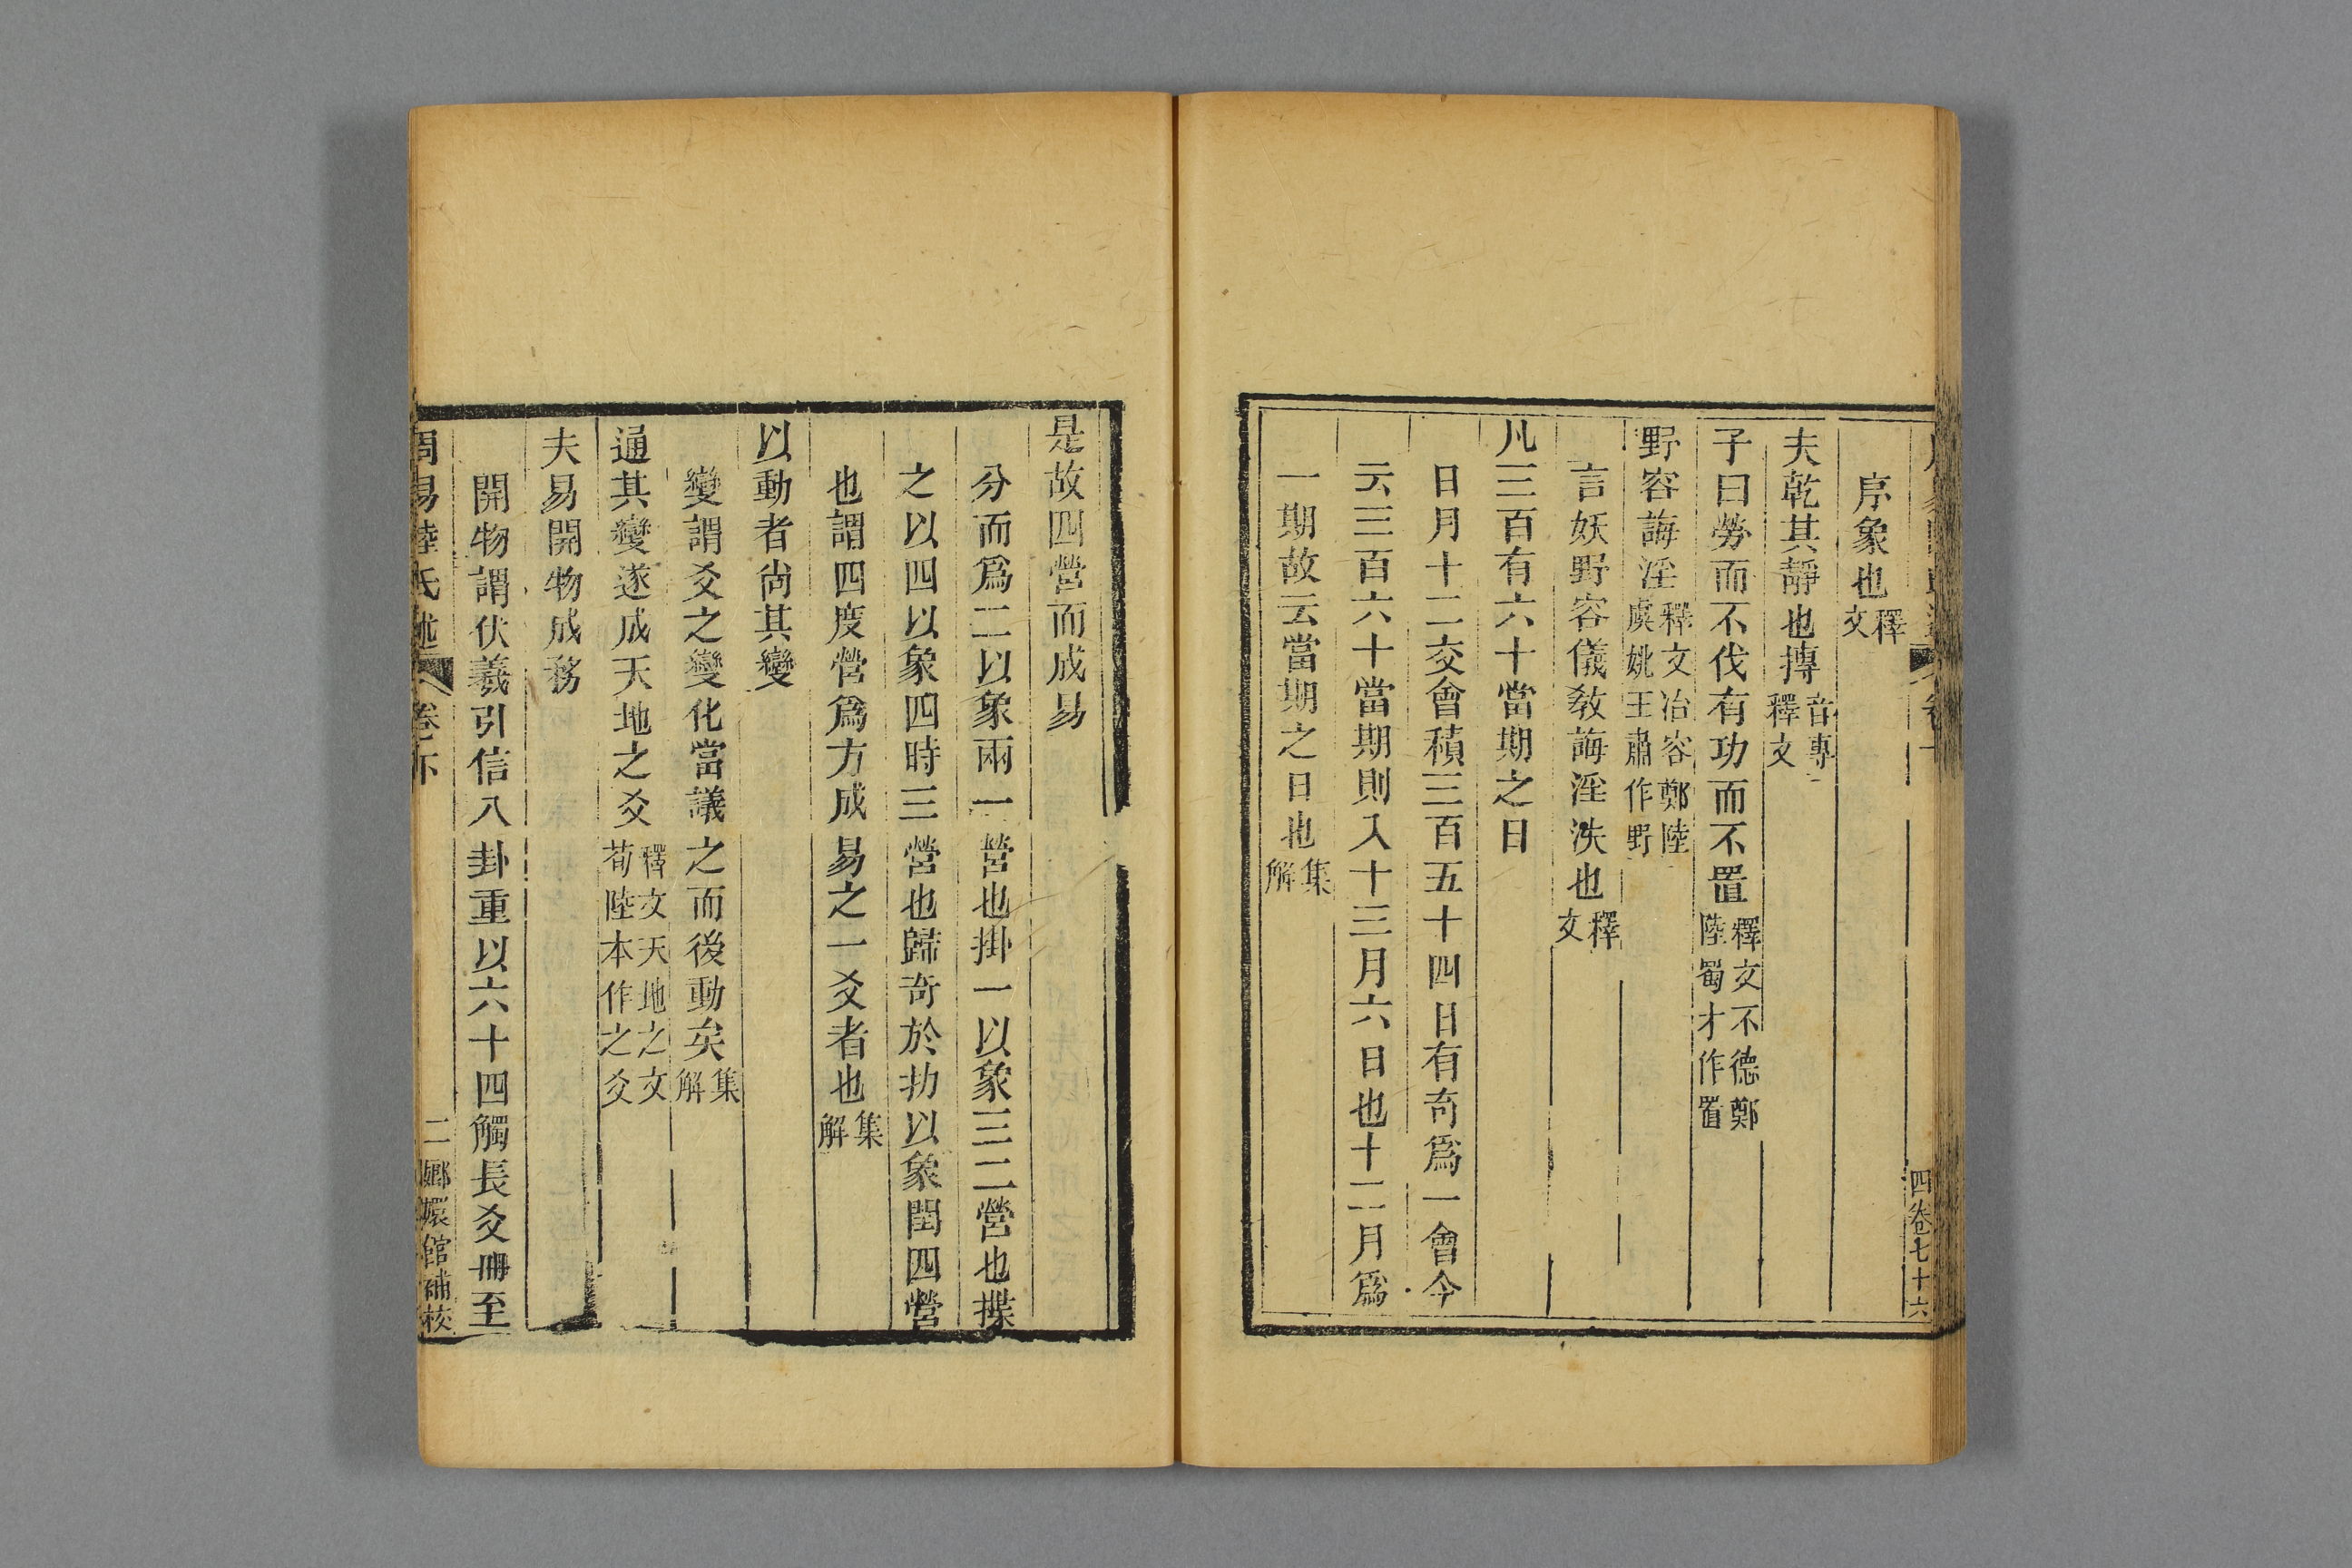 序象也釋文
夫乾其靜也摶音專釋文
子曰勞而不伐有功而不置釋文不德鄭陸蜀才作置
野容誨淫釋文冶容鄭陸虞姚王肅作野
言妖野容儀教誨淫泆也釋文
凡三百有六十當期之日
日月十二交會積三百五十四日有奇爲一會今
云三百六十當期則入十三月六日也十二月爲
一期故云當期之日也集解
四卷七十六
是故四營而成易
分而爲二以象兩一營也掛一以象三二營也揲
之以四以象四時三營也歸奇於扐以象閏四營
也謂四度營爲方成易之一爻者也集解
以動者尙其變
變謂爻之變化當議之而後動矣集解
通其變遂成天地之爻釋文天地之文荀陸本作之爻
夫易開物成務
開物謂伏羲引信八卦重以六十四觸長爻冊至
周易陸氏述 卷下 二 嫏嬛館補校